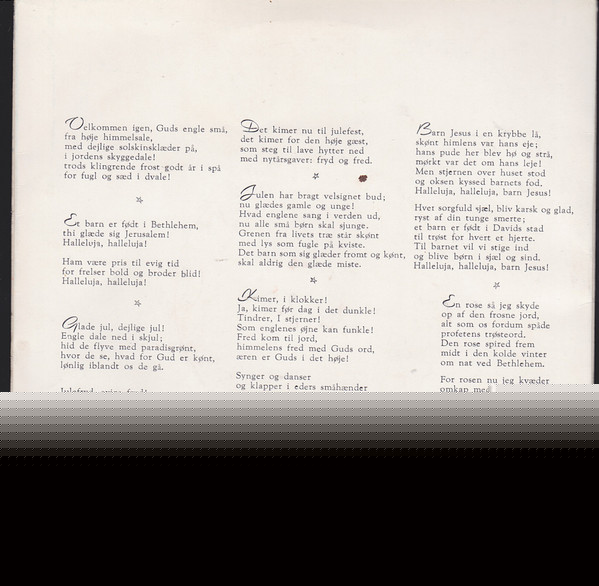 Velkommen igen, Guds engle små,
fra høje himmelsale,
med dejlige solskinsklæder på,
i jordens skyggedale!
trods klingrende frost godt år i spå
for fugl og sæd i dvale!
Et barn er født i Bethlehem,
thi glæde sig Jerusalem!
Halleluja, halleluja!
Ham være pris til evig tid
for frelser bold og broder blid!
Halleluja, halleluja!
Glade jul, dejlige jul!
Engle dale ned i skjul;
hid de flyve med paradisgrønt,
hvor de se, hvad for Gud er kønt,
lønlig iblandt os de gå.
Det kimer nu til julefest,
det kimer for den høje gæst,
som steg til lave hytter ned
med nytårsgaver: fryd og fred.
Julen har bragt velsignet bud;
nu glædes gamle og unge!
Hvad englene sang i verden ud,
nu alle små børn skal sjunge.
Grenen fra livets træ står skønt
med lys som fugle på kviste.
Det barn som sig glæder fromt og kønt,
skal aldrig den glæde miste.
Kimer, i klokker!
Ja, kimer før dag i det dunkle!
Tindrer, I stjerner!
Som englenes øjne kan funkle!
Fred kom til jord,
himmelens fred med Guds ord,
æren er Guds i det høje!
Synger og danser
og klapper i eders småhænder
Barn Jesus i en krybbe lå,
skønt himlens var hans eje;
hans pude her blev hø og strå,
mørkt var det om hans leje!
Men stjernen over huset stod
og oksen kyssed barnets fod.
Halleluja, halleluja, barn Jesus!
Hver sorgfuld sjæl, bliv karsk og glad,
ryst af din tunge smerte;
et barn er født i Davids stad
til trøst for hvert et hjerte.
Til barnet vil vi stige ind
og blive børn i sjæl og sind.
Halleluja, halleluja, barn Jesus!
En rose så jeg skyde
op af den frosne jord,
alt som os fordum spåde
profetens trøsteord.
Den rose spired frem
midt i den kolde vinter
om nat ved Bethlehem.
For rosen nu jeg kvæder
omkap med